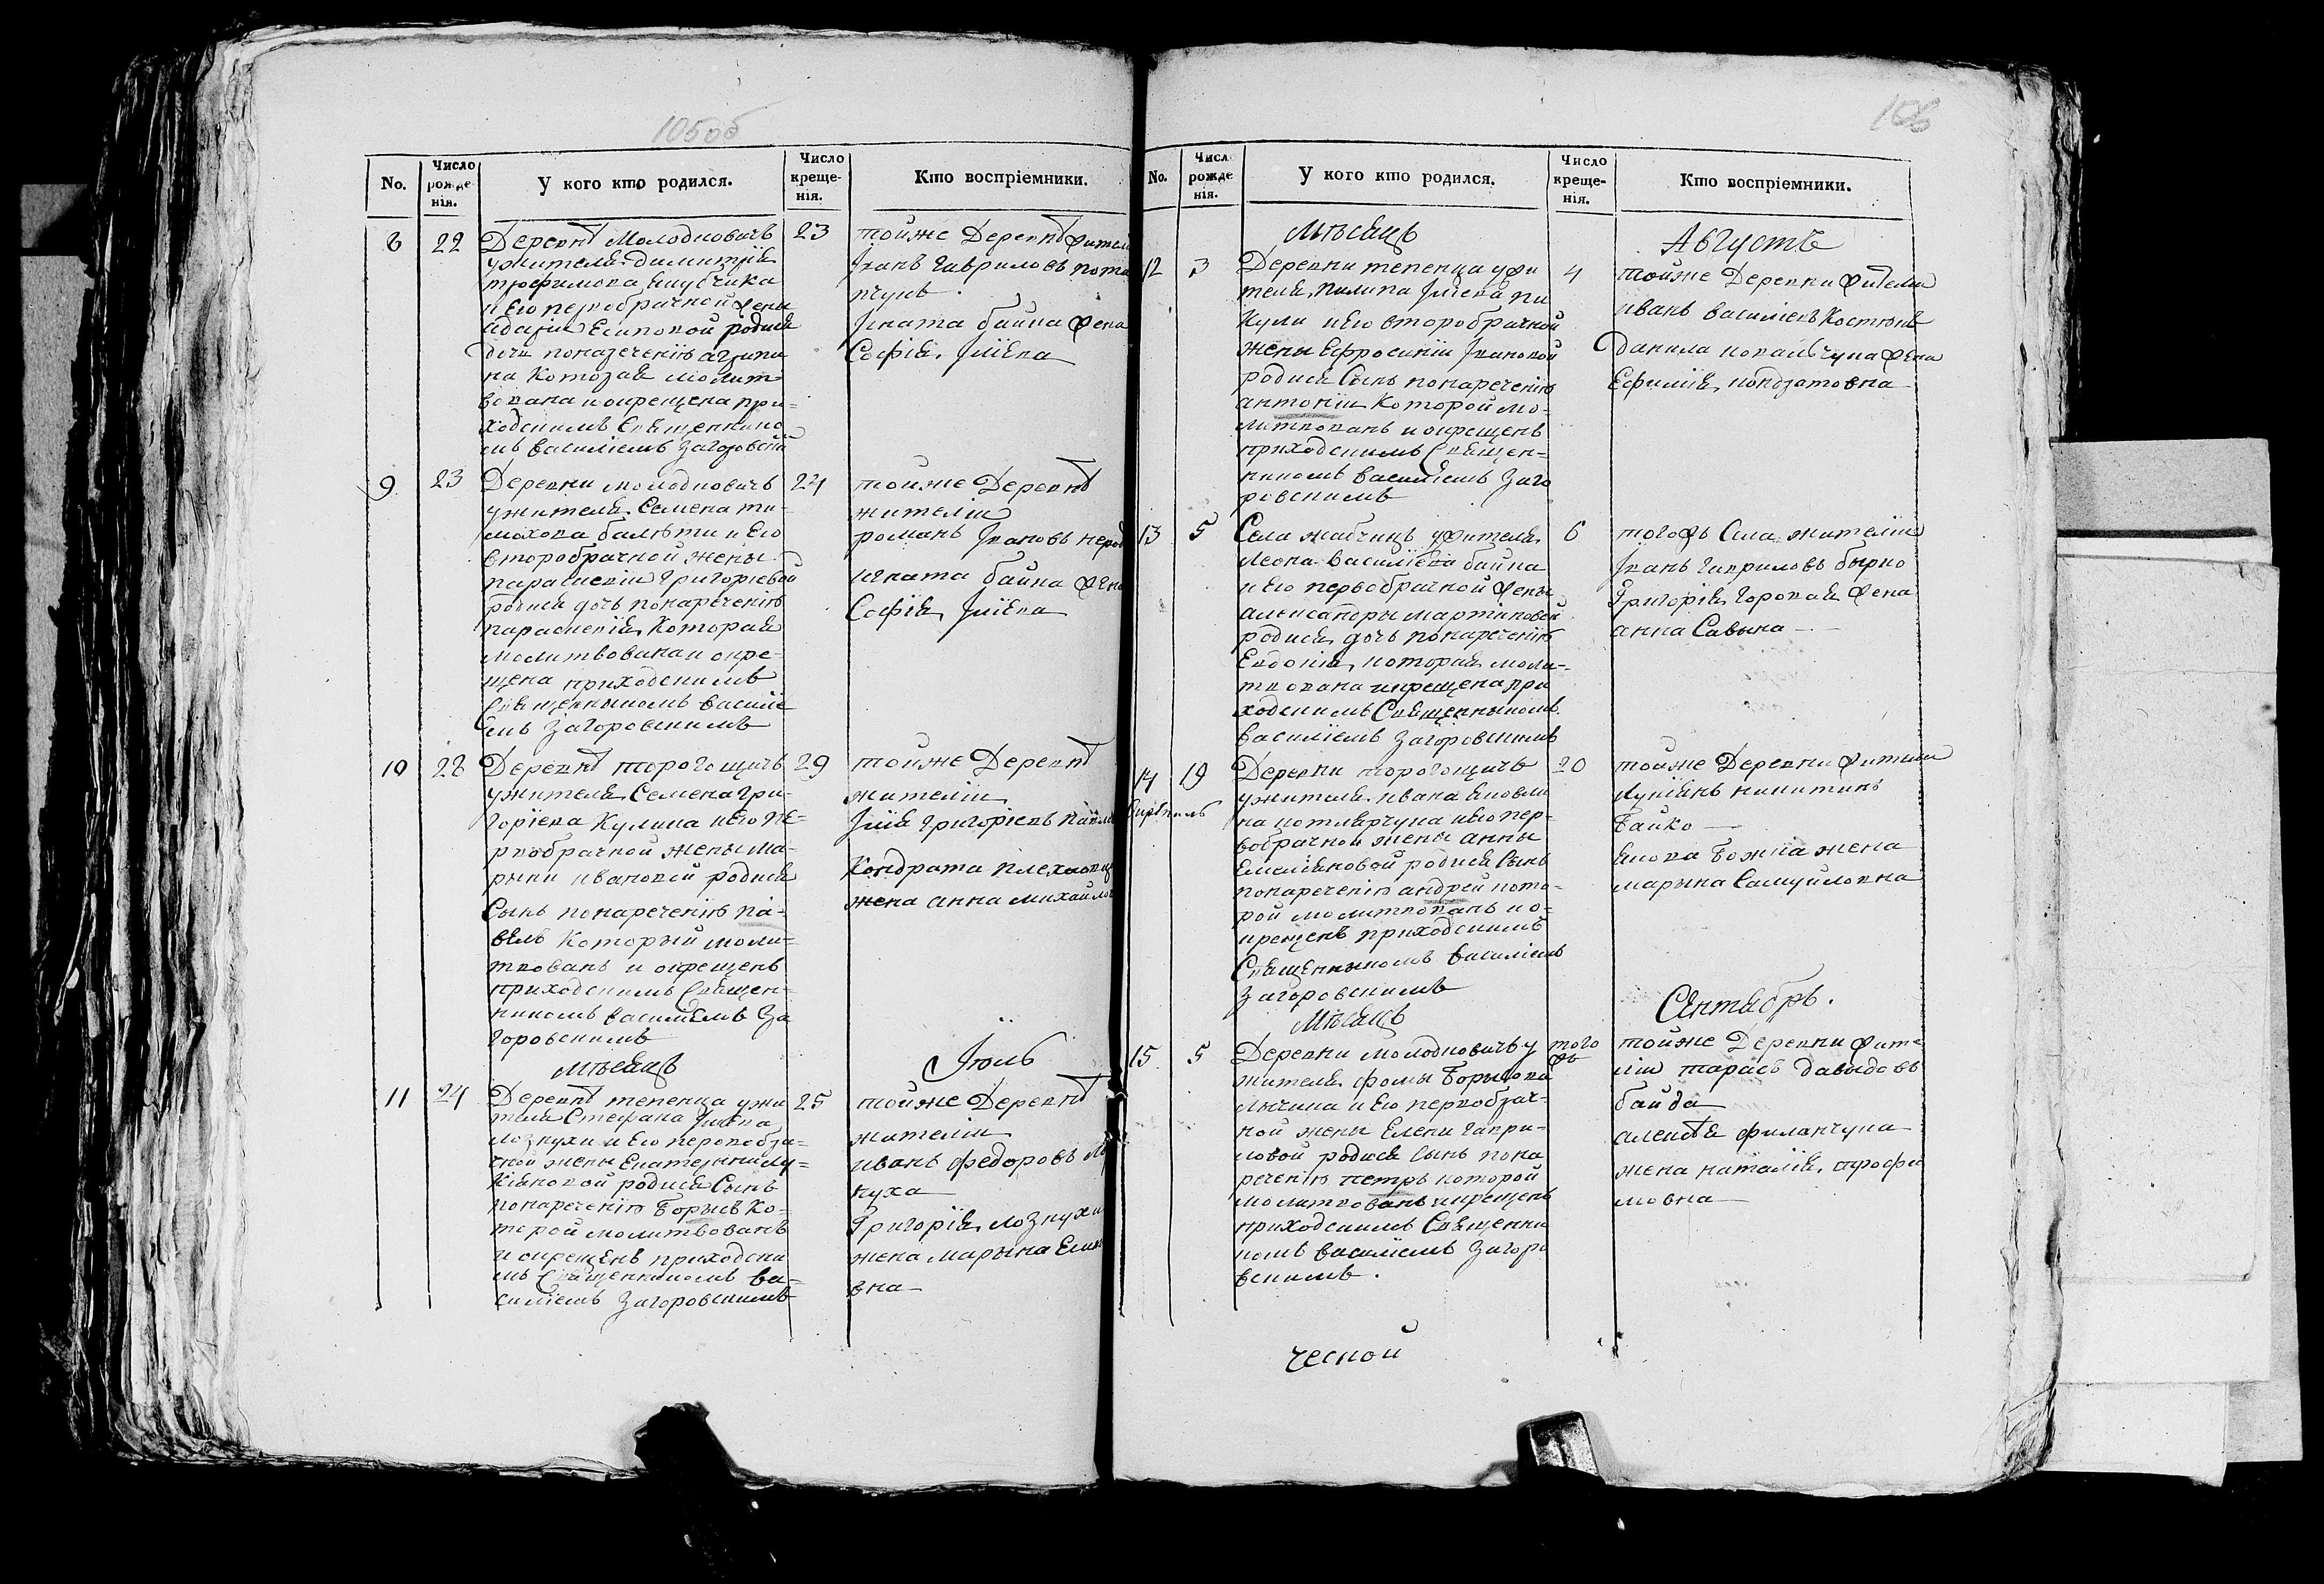 105об
No.
Число рожде-нія.
У кого кто родился.
Число креще-нія.
Кто воспріемники.
8
22
23
Деревнѣ Молодковичъ
ужителя Димитрія
трофимова
и Его первобрачной жены
родися
дочь понаречению агрипи
на Которая молит
вована и окрещена при-
ходскимъ Священнико
мъ василіемъ Загоровски
тойже Деревнѣ жител
Іванъ гавриловъ
Игната байка жена
Софія Іліева
9
23
24
Деревни молодковичъ
ужителя Семена ти-
мохова и Его
второбрачной жены
параскевіи Григоріевой
родися дочь понаречению
параскевія Которая
молитвована и окре-
щена приходскимъ
Священникомъ василіе
емъ Загоровскимъ
тойже Деревнѣ
жителіи
романъ Івановъ
игната байка жена
Софія Іліева
10
28
29
Деревнѣ торогощичъ
ужителя Семена Гри-
горіева Кулика и его пе-
рвобрачной жены ма-
рыни ивановой родися
Сынъ понаречению па-
велъ Который моли-
твованъ и окрещенъ
приходскимъ Священ-
никомъ василіемъ За
горовскимъ
тойже Деревнѣ
жителіи
Ілія григоріевъ
Кондрата
жена анна михайло
мѣсяцъ
Іюль
11
24
25
Деревнѣ тепенца ужи
теля Стефана Іліева
лозкухи и Его первобра-
чной жены Екатерыни лу-
кіяновой родися Сынъ
понаречению Борысъ Ко-
торой молитвованъ
и окрещенъ приходски
мъ Священникомъ ва-
силіемъ Загоровскимъ
тойже Деревнѣ
жителіи
иванъ федоровъ
Григорія лозкухи
жена марына
вна
106
No.
Числ рожде нія.
У кого кто родился.
Число креще-нія.
Кто воспріемники.
мѣсяцъ
Августъ
12
3
4
Деревни тепенца ужи
теля пилипа Іліева пи
кули и Его второбрачной
жены Ефросиніи Івановой
родися Сынъ понаречению
антоніи Которой мо-
литвованъ и окрещенъ
приходскимъ Священ-
никомъ василіемъ Заго
ровскимъ
тойже Деревни жители
иванъ василіевъ
Данила ковальчука жена
Ефимія кондратовна
13
5
6
Села жабчицъ ужителя
леона василіева байка
и его первобрачной жены
александры мартиновой
родися дочь понаречению
Евдокія которая моли-
твована икрещена при
ходскимъ Священникомъ
василіемъ Загоровскимъ
тогожъ Села жителіи
Іванъ гавриловъ бырко
Григорія жена
анна Савына
14
19
20
Деревни торогощичъ
ужителя ивана
котлярчука иего пер-
вобрачной жены анны
Емеліяновой родися Сынъ
понаречению андрей кото-
рой молитвованъ ио-
крещенъ приходскимъ
Священникомъ василіемъ
Загоровскимъ
тойже Деревни жители
лукіянъ никитинъ
Байко
якова жена
марына Самуйловна
Мѣсяцъ
Сентябрь.
15
5
того жъ
Деревни молодковичъ у
жителя фомы Борысова
лычика и Его первобрач-
ной жены Елены гаври-
ловой родися Сынъ пона
речению петръ которой
молитвованъ икрещенъ
приходскимъ Священни
комъ василіемъ Загоро
вскимъ.
тойже Деревни жите
ліи тарасъ давыдовъ
байда
алексѣя филанчука
жена наталія трофи
мовна
ческой